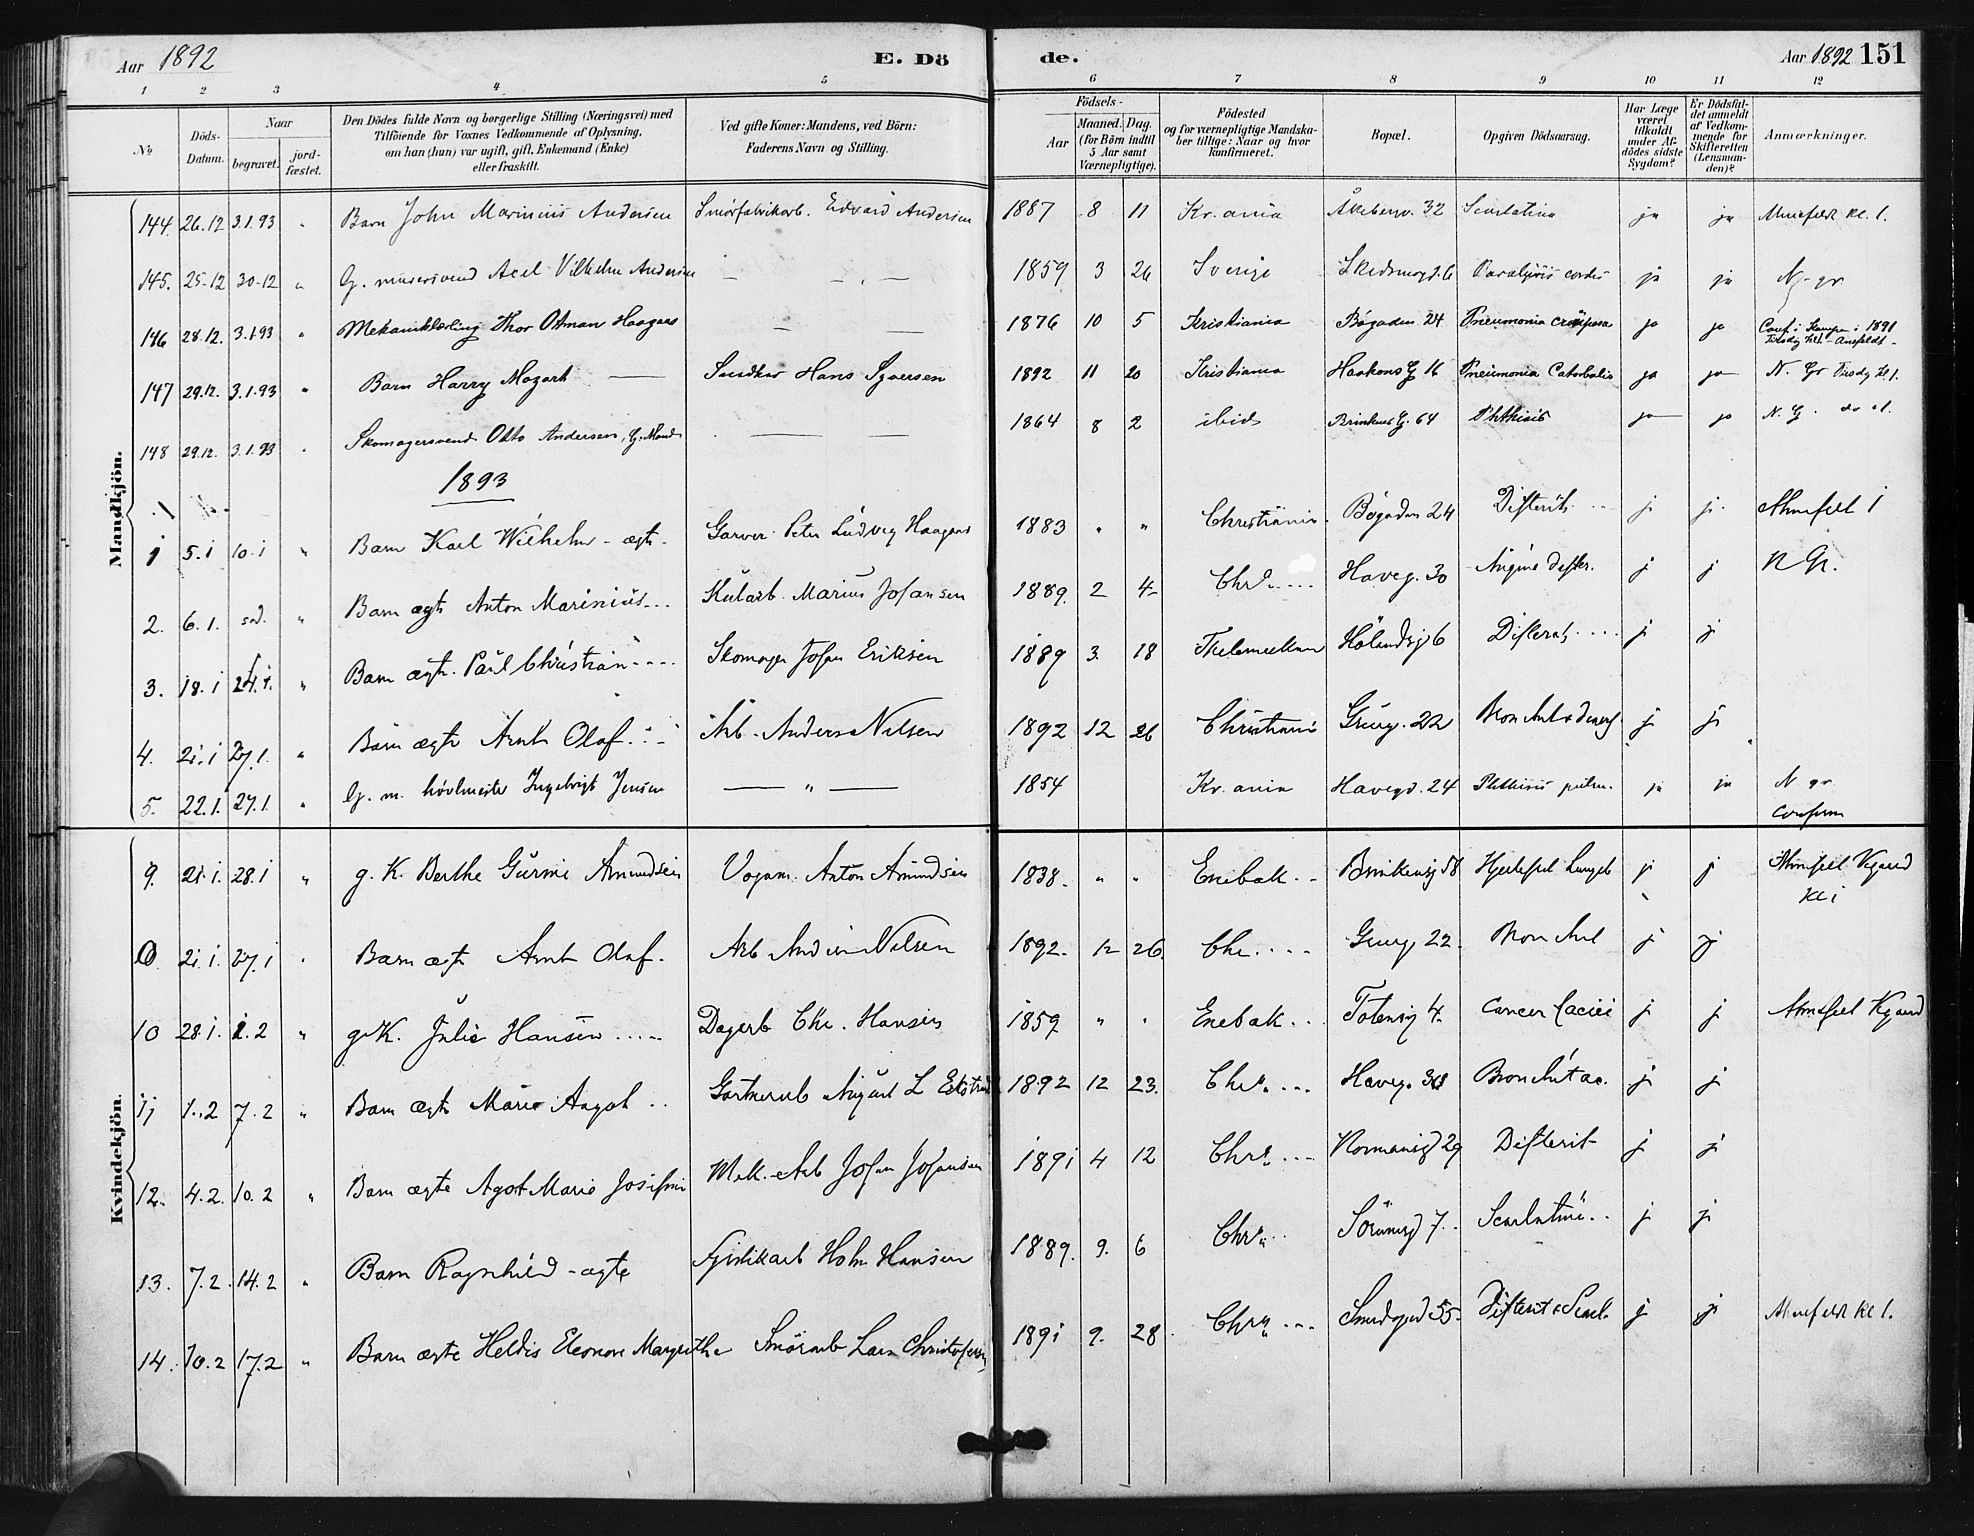 Aar 1892 E. Dö de. Aar 1892 151
1 2 3 4 5 6 7 8 9 10 11 12
No Döds-Datum. Naar begravet. jord-fæstet. Den Dödes fulde Navn og borgerlige Stilling (Næringsvei) med Tilföiende for Voxnes Vedkommende af Oplysning, om han (hun) var ugift, gift, Enkemand (Enke) eller fraskilt. Ved gifte Koner: Mandens, ved Börn: Faderens Navn og Stilling. Födsels- Aar Maaned. Dag. (for Börn indtil 5 Aar samt Værnepligtige). Födested og for værnepligtige Mandskaber tillige: Naar og hvor konfirmeret. Bopæl. Opgiven Dödsaarsag. Har Læge været tilkaldt under Afdödes sidste Sygdom? Er Dödsfaldet anmeldt af Vedkommende for Skifteretten (Lensmanden)? Anmærkninger.
Mandkjön.
144. 26.12 3.1.93 " Barn John Marinius Andersen Smørfabrikarb. Edvard Andersen 1887 8 11 Kr.ania Åkebergv. 32 Scarlatina ja ja Ahnefeldt kl. 1.
145. 25-12 30-12 " G. murersvend Axel Vilhelm Andersen — " — 1859 3 26 Sverige Skedsmogd. 6 Paralysis cordis ja ja N. gr
146 28.12. 3.1.93 " Mekanikklærling Thor Otman Haagaas — — 1876 10 5 Kristiania Bögaden 24 Pneumonia crouposa ja ja Conf. i Kampen i 1891
147 29.12. 3.1.93 " Barn Harry Mozart — Hans Syversen 1892 11 20 Kristiania Haakons G 16 Pneumonia Catarhalis ja ja N. Gr Tirsdg kl. 1.
148 29.12. 3.1.93 " Skomagersvend Otto Andersen, G. Mand — — 1864 8 2 ibid Brinkens G. 64 Phthisis ja ja N. G. do 1.
1893
1 5.1 10.1 " Barn Karl Wilhelm - ægte - Garver Peter Ludvig Haagens 1883 " " Christiania. Bögaden 24 Difterit j j. Ahnefelt 1
2. 6.1. " Barn ægte Anton Marinius Kularb. Marius Johansen 1889. 2 4 Chra Haveg. 30 Angina difter. j j N Gr.
3. 18.1 24.1. " Barn ægte. Paul Christian Skomager Johan Eriksen 1889 3. 18 Hölandsg 6 Difterit j j
4. 21.1 27.1. " Barn ægte Arnt Olaf Arb. Anders Nilsen 1892 12 26 Christiania Grueg. 22 j j
5. 22.1. 27.1. " G. m. hövlmester Ingebrigt Jensen — " — 1854 Kr.ania Havegd. 24 Phthisis pulm. ja ja N gr conform
Kvindekjön.
9. 21.1. 28.1 " g. K. Berthe Gurine Amundsen Vognm. Anton Amundsen 1838. " " Enebak Brinkensg 58 j j Ahnefelt Vgaard Kl 1
21.1. 27.1 " Barn ægte Arnt Olaf. Arb Anders Nilsen 1892. 12 26. Chr Grueg 22. Bronchit j j
10 28.1. 1.2 " g. K. Julie Hansen Dagarb Chr. Hansen 1859 " " Enebak Totensg 4. Cancer j j Ahnefelt Kgaard
11 1.2 7.2 " Barn ægte Marie Aagot Gartnerarb August L. 1892 12 23. Chra Haveg. Bronchit ac. j j
12. 4.2. 10.2 " Barn ægte Agot Marie Josefine Mek. Arb Johan Johansen 1891 4 12 Chra Normannsg 29 Difterit j j
13. 7.2. 14.2 " Barn Ragnhild - ægte Holm Hansen 1889. 9. 6 Chra Sörumsg 7 Scarlatina j j
14. 10.2 17.2 " Barn ægte Heldis Eleonore Margrethe Smörarb Lars Christofersen 1891 9. 28 Chra Smedgad 55. Difterit & Scarl. j j Ahnefeldt Kl 1.